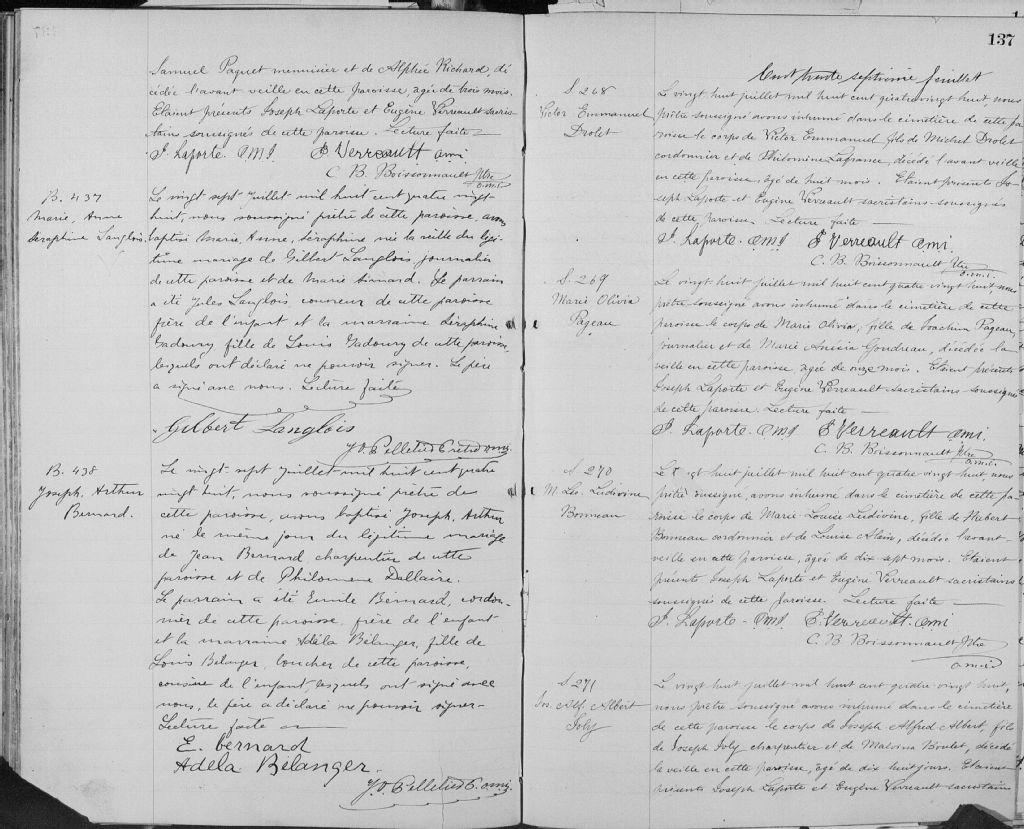 Samuel Paquet menuisier et de Alphée Richard, dé
cédée l'avant veille en cette paroisse, agée de trois mois.
Etaient présents Joseph Laporte et Eugène Verreault sacris
tains soussignés de cette paroisse. Lecture faite
J. Laporte. O.M.I. E Verreault omi
C. B. Boissonnault Ptre
o.m.i.
B. 437
Marie, Anne
Séraphine Langlois
Le vingt sept Juillet mil huit cent quatre vingt-
huit, nous soussigné prêtre de cette paroisse, avons
baptisé Marie, Anne, Séraphine née la veille du légi-
time mariage de Gilbert Langlois, journalier
de cette paroisse et de Marie Simard. Le parrain
a été Jules Langlois couvreur de cette paroisse
frère de l'enfant et la marraine Séraphine
Gadoury fille de Louis Gadoury de cette paroisse,
lesquels ont déclaré ne pouvoir signer. Le père
a signé avec nous. Lecture faite
Gilbert Langlois
J. O. Pelletier Ptre o.m.i.
B. 438
Joseph, Arthur
Bernard.
Le vingt-sept Juillet mil huit cent quatre
vingt huit, nous soussigné prêtre de
cette paroisse, avons baptisé Joseph, Arthur
né le même jour du légitime mariage
de Jean Bernard charpentier de cette
paroisse et de Philomene Dallaire.
Le parrain a été Emile Bernard, cordon-
nier de cette paroisse, frère de l'enfant
et la marraine Adèla Bélanger, fille de
Louis Bélanger, boucher de cette paroisse,
cousine de l'enfant, lesquels ont signé avec
nous, le père a déclaré ne pouvoir signer-
Lecture faite
E. bernard
Adèla Bélanger.
J. O Pelletier P. o.m.i.
137
Cent trente septième feuillet
S 268
Victor Emmanuel
Drolet
Le vingt huit juillet mil huit cent quatre vingt huit, nous
prêtre soussigné avons inhumé dans le cimetière de cette pa
roisse le corps de Victor Emmanuel fils de Michel Drolet
cordonnier et de Philomine Lafrance, décédé l'avant veille
en cette paroisse, agé de huit mois. Etaient présents Jo-
seph Laporte et Eugène Verreault sacristains soussignés
de cette paroisse. Lecture faite
J. Laporte. O.M.I E Verreault omi.
C. B. Boissonnault Ptre
o.m.i.
S. 269
Marie Olivia
Pageau
Le vingt huit juillet mil huit cent quatre vingt huit, nous
prêtre soussigné avons inhumé dans le cimetière de cette
paroisse le corps de Marie Olivia, fille de Joachim Pageau,
journalier et de Marie Anisia Goudreau, décédée la
veille en cette paroisse, agée de onze mois. Etaient présents
Joseph Laporte et Eugène Verreault sacristains soussignés
de cette paroisse. Lecture faite
J. Laporte. O.M.I E Verreault omi.
C. B. Boissonnault Ptre
o.m.i.
S 270
M. Ls. Ludivine
Bonneau
Le vingt huit juillet mil huit cent quatre vingt huit, nous
prêtre soussigné, avons inhumé dans le cimetière de cette pa
roisse le corps de Marie Louise Ludivine, fille de Hubert
Bonneau cordonnier et de Louise Alain, décédée l'avant-
veille en cette paroisse, agée de dix sept mois. Etaient
présents Joseph Laporte et Eugène Verreault sacristains
soussignés de cette paroisse. Lecture faite
J. Laporte - O.M.I. E. Verreault omi
C. B Boissonnault Ptre
o.m.i
S 271
Jos. Alf. Albert
Joly
Le vingt huit juillet mil huit cent quatre vingt huit,
nous prêtre soussigné avons inhumé dans le cimetière
de cette paroisse le corps de Joseph Alfred Albert, fils
de Joseph Joly charpentier et de Malvina Boulet, décédé
la veille en cette paroisse, agé de dix huit jours. Etaient
présents Joseph Laporte et Eugène Verreault sacristains